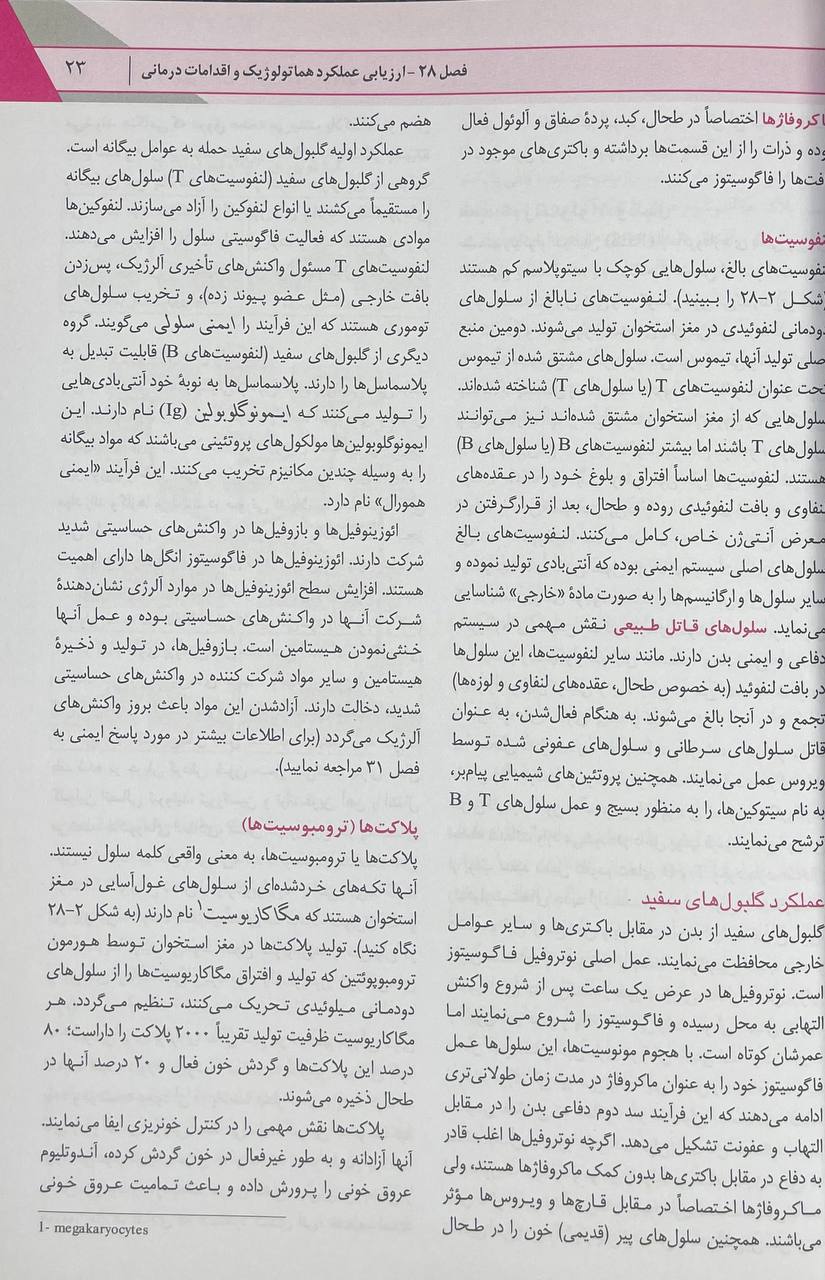 فصل ۲۸ - ارزیابی عملکرد هماتولوژیک و اقدامات درمانی
۲۳
ماکروفاژها اختصاصاً در طحال، کبد، پردهٔ صفاق و آلوئول فعال
بوده و ذرات را از این قسمت‌ها برداشته و باکتری‌های موجود در
بافت‌ها را فاگوسیتوز می‌کنند.
لنفوسیت‌ها
لنفوسیت‌های بالغ، سلول‌هایی کوچک با سیتوپلاسم کم هستند
(شکل ۲-۲۸ را ببینید). لنفوسیت‌های نابالغ از سلول‌های
دودمانی لنفوئیدی در مغز استخوان تولید می‌شوند. دومین منبع
اصلی تولید آنها، تیموس است. سلول‌های مشتق شده از تیموس
تحت عنوان لنفوسیت‌های T (یا سلول‌های T) شناخته شده‌اند.
سلول‌هایی که از مغز استخوان مشتق شده‌اند نیز می‌توانند
سلول‌های T باشند اما بیشتر لنفوسیت‌های B (یا سلول‌های B)
هستند. لنفوسیت‌ها اساساً افتراق و بلوغ خود را در عقده‌های
لنفاوی و بافت لنفوئیدی روده و طحال، بعد از قرارگرفتن در
معرض آنتی‌ژن خاص، کامل می‌کنند. لنفوسیت‌های بالغ
سلول‌های اصلی سیستم ایمنی بوده که آنتی‌بادی تولید نموده و
سایر سلول‌ها و ارگانیسم‌ها را به صورت مادهٔ «خارجی» شناسایی
می‌نماید. سلول‌های قاتل طبیعی نقش مهمی در سیستم
دفاعی و ایمنی بدن دارند. مانند سایر لنفوسیت‌ها، این سلول‌ها
در بافت لنفوئید (به خصوص طحال، عقده‌های لنفاوی و لوزه‌ها)
تجمع و در آنجا بالغ می‌شوند. به هنگام فعال‌شدن، به عنوان
قاتل سلول‌های سرطانی و سلول‌های عفونی شده توسط
ویروس عمل می‌نمایند. همچنین پروتئین‌های شیمیایی پیام‌بر،
به نام سیتوکین‌ها، را به منظور بسیج و عمل سلول‌های T و B
ترشح می‌نمایند.
عملکرد گلبول‌های سفید
گلبول‌های سفید از بدن در مقابل باکتری‌ها و سایر عوامل
خارجی محافظت می‌نمایند. عمل اصلی نوتروفیل فاگوسیتوز
است. نوتروفیل‌ها در عرض یک ساعت پس از شروع واکنش
التهابی به محل رسیده و فاگوسیتوز را شروع می‌نمایند اما
عمرشان کوتاه است. با هجوم مونوسیت‌ها، این سلول‌ها عمل
فاگوسیتوز خود را به عنوان ماکروفاژ در مدت زمان طولانی‌تری
ادامه می‌دهند که این فرآیند سد دوم دفاعی بدن را در مقابل
التهاب و عفونت تشکیل می‌دهد. اگرچه نوتروفیل‌ها اغلب قادر
به دفاع در مقابل باکتری‌ها بدون کمک ماکروفاژها هستند، ولی
ماکروفاژها اختصاصاً در مقابل قارچ‌ها و ویروس‌ها مؤثر
می‌باشند. همچنین سلول‌های پیر (قدیمی) خون را در طحال
هضم می‌کنند.
عملکرد اولیه گلبول‌های سفید حمله به عوامل بیگانه است.
گروهی از گلبول‌های سفید (لنفوسیت‌های T) سلول‌های بیگانه
را مستقیماً می‌کشند یا انواع لنفوکین را آزاد می‌سازند. لنفوکین‌ها
موادی هستند که فعالیت فاگوسیتی سلول را افزایش می‌دهند.
لنفوسیت‌های T مسئول واکنش‌های تأخیری آلرژیک، پس‌زدن
بافت خارجی (مثل عضو پیوند زده)، و تخریب سلول‌های
توموری هستند که این فرآیند را ایمنی سلولی می‌گویند. گروه
دیگری از گلبول‌های سفید (لنفوسیت‌های B) قابلیت تبدیل به
پلاسماسل‌ها را دارند. پلاسماسل‌ها به نوبهٔ خود آنتی‌بادی‌هایی
را تولید می‌کنند که ایمونوگلوبولین (Ig) نام دارند. این
ایمونوگلوبولین‌ها مولکول‌های پروتئینی می‌باشند که مواد بیگانه
را به وسیله چندین مکانیزم تخریب می‌کنند. این فرآیند «ایمنی
همورال» نام دارد.
ائوزینوفیل‌ها و بازوفیل‌ها در واکنش‌های حساسیتی شدید
شرکت دارند. ائوزینوفیل‌ها در فاگوسیتوز انگل‌ها دارای اهمیت
هستند. افزایش سطح ائوزینوفیل‌ها در موارد آلرژی نشان‌دهندهٔ
شرکت آنها در واکنش‌های حساسیتی بوده و عمل آنها
خنثی‌نمودن هیستامین است. بازوفیل‌ها، در تولید و ذخیرهٔ
هیستامین و سایر مواد شرکت کننده در واکنش‌های حساسیتی
شدید، دخالت دارند. آزادشدن این مواد باعث بروز واکنش‌های
آلرژیک می‌گردد (برای اطلاعات بیشتر در مورد پاسخ ایمنی به
فصل ۳۱ مراجعه نمایید).
پلاکت‌ها (ترومبوسیت‌ها)
پلاکت‌ها یا ترومبوسیت‌ها، به معنی واقعی کلمه سلول نیستند.
آنها تکه‌های خردشده‌ای از سلول‌های غول‌آسایی در مغز
استخوان هستند که مگاکاریوسیت۱ نام دارند (به شکل ۲-۲۸
نگاه کنید). تولید پلاکت‌ها در مغز استخوان توسط هورمون
ترومبوپوئتین که تولید و افتراق مگاکاریوسیت‌ها را از سلول‌های
دودمانی میلوئیدی تحریک می‌کنند، تنظیم می‌گردد. هر
مگاکاریوسیت ظرفیت تولید تقریباً ۲۰۰۰ پلاکت را داراست؛ ۸۰
درصد این پلاکت‌ها و گردش خون فعال و ۲۰ درصد آنها در
طحال ذخیره می‌شوند.
پلاکت‌ها نقش مهمی را در کنترل خونریزی ایفا می‌نمایند.
آنها آزادانه و به طور غیرفعال در خون گردش کرده، آندوتلیوم
عروق خونی را پرورش داده و باعث تمامیت عروق خونی
1- megakaryocytes